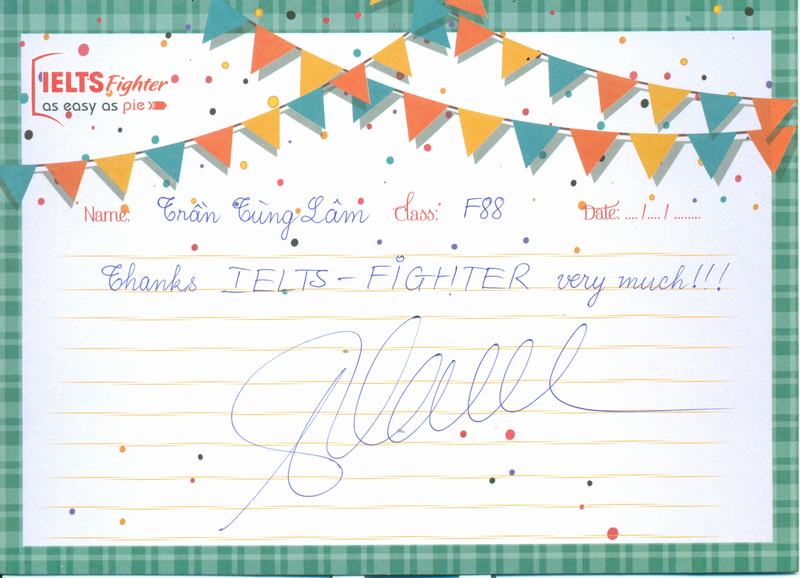 IELTS Fighter
as easy as pie
Name: Trần Tùng Lâm Class: F88 Date: .... /.... / ........
Thanks IELTS - FIGHTER very much!!!